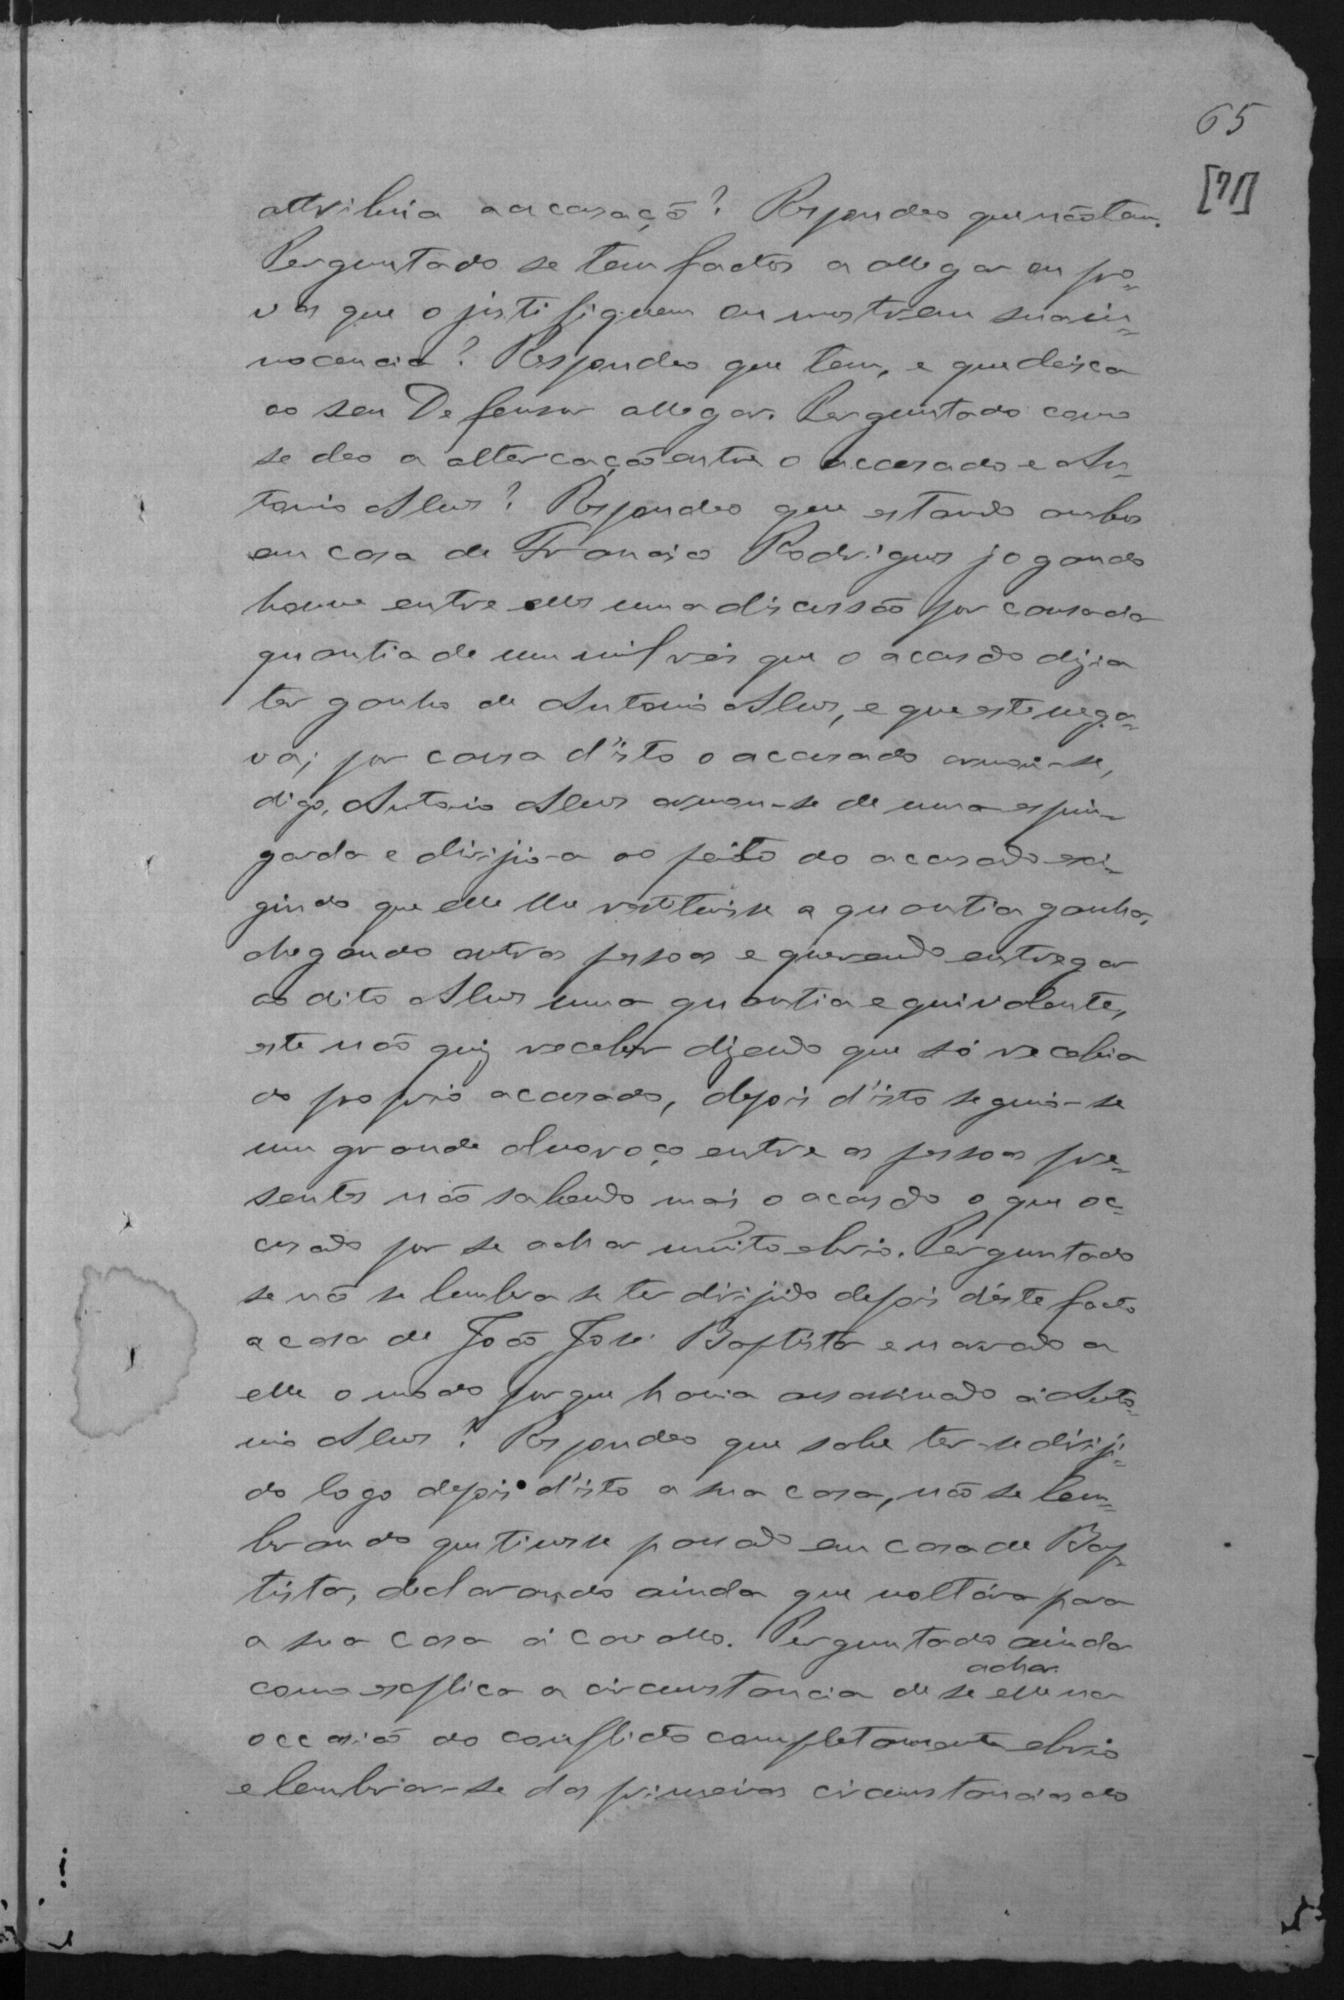 65
[71]
attribuia a acusaçõ? Respondeo que não tem.
Perguntado se tem factos a allegar ou pro-
vas que o justifiquem ou mostrem sua in-
nocencia? Respondeo que tem, e que deixa
ao seu Defensor allegar. Perguntado como
se deo a altercação entre o accusado e An-
tonio Alves? Respondeo que estando ambos
em casa de Francisco Rodrigues jogando
houve entre elles uma discussão por causa da
quantia de um mil reis que o acusado dizia
ter ganho de Antonio Alves, e que este nega-
va; por causa d'isto o accusado armou-se,
digo, Antonio Alves armou-se de uma espin-
garda e dirijio-a ao peito do accusado exi-
gindo que elle lhe restituisse a quantia ganha,
chegando outras pessoas e querendo entregar
ao dito Alves uma quantia equivalente,
este não quiz receber dizendo que só recebia
do proprio accusado, depois d'isto seguio-se
um grande alvoroço entre as pessoas pre-
sentes não sabendo mais o acusado o que oc-
corrido por se achar muito ebrio. Perguntado
se não se lembra se ter dirijido depois déste facto
a casa de João José Baptista e narrado a
elle o modo porque havia assassinado á Anto-
nio Alves? Respondeo que sabe ter-se diriji-
do logo depois d'isto a sua casa, não se lem-
brando que tivesse passado em casa de Bap-
tista, declarando ainda que voltára para
a sua casa á cavallo. Perguntado ainda
como explica a circunstancia de se achar elle na
occasião do conflicto completamente ebrio
e lembrar-se das primeiras circunstancias do